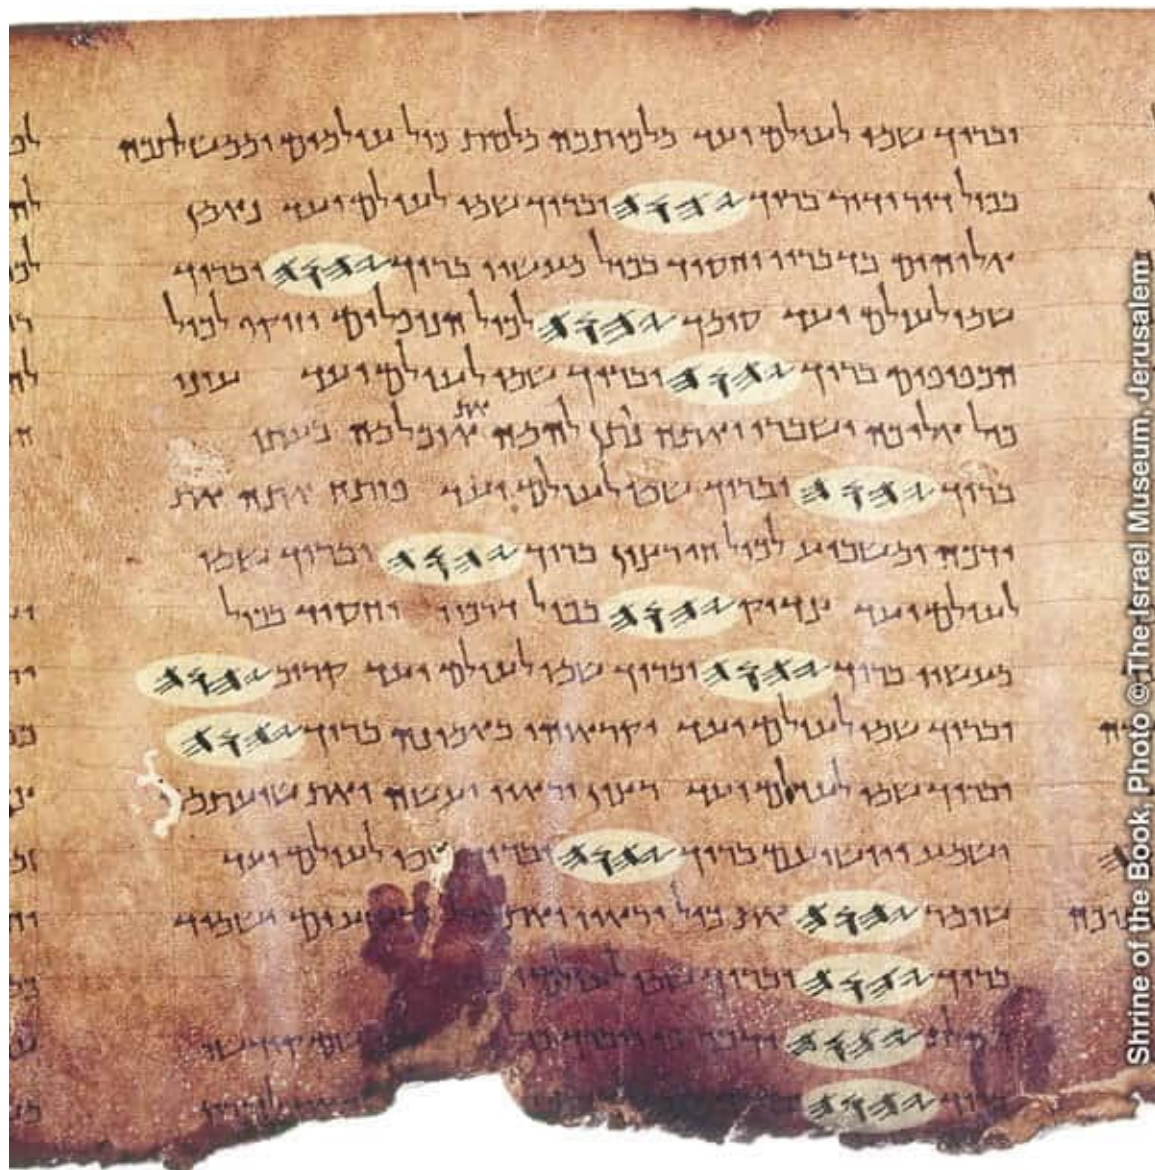 וברוך שמו לעולם ועד מלכותכה מלכות כול עולמים וממשלתכה
בכול דור ודור ברוך 𐤉𐤄𐤅𐤄 וברוך שמו לעולם ועד נאמן
אלוהים בדבריו וחסיד בכול מעשיו ברוך 𐤉𐤄𐤅𐤄 וברוך
שמו לעולם ועד סומך 𐤉𐤄𐤅𐤄 לכול הנופלים וזוקף לכול
הכפופים ברוך 𐤉𐤄𐤅𐤄 וברוך שמו לעולם ועד עיני
כול אליכה ישברו ואתה נותן להמה את אוכלמה בעתו
ברוך 𐤉𐤄𐤅𐤄 וברוך שמו לעולם ועד פותח אתה את
ידכה ומשביע לכול חי רצון ברוך 𐤉𐤄𐤅𐤄 וברוך שמו
לעולם ועד צדיק 𐤉𐤄𐤅𐤄 בכול דרכיו וחסיד בכול
מעשיו ברוך 𐤉𐤄𐤅𐤄 וברוך שמו לעולם ועד קרוב 𐤉𐤄𐤅𐤄
וברוך שמו לעולם ועד יקראוהו באמונה ברוך 𐤉𐤄𐤅𐤄
וברוך שמו לעולם ועד רצון יראיו יעשה ואת שועתמה
ישמע ויושיעם ברוך 𐤉𐤄𐤅𐤄 וברוך שמו לעולם ועד
שומר 𐤉𐤄𐤅𐤄 את כול יראיו ואת רשעים ישמיד
ברוך 𐤉𐤄𐤅𐤄 וברוך שמו לעולם
𐤉𐤄𐤅𐤄 ידבר פי ויברך כול שם קודשו
ברוך 𐤉𐤄𐤅𐤄 לזכרון
Shrine of the Book, Photo © The Israel Museum, Jerusalem